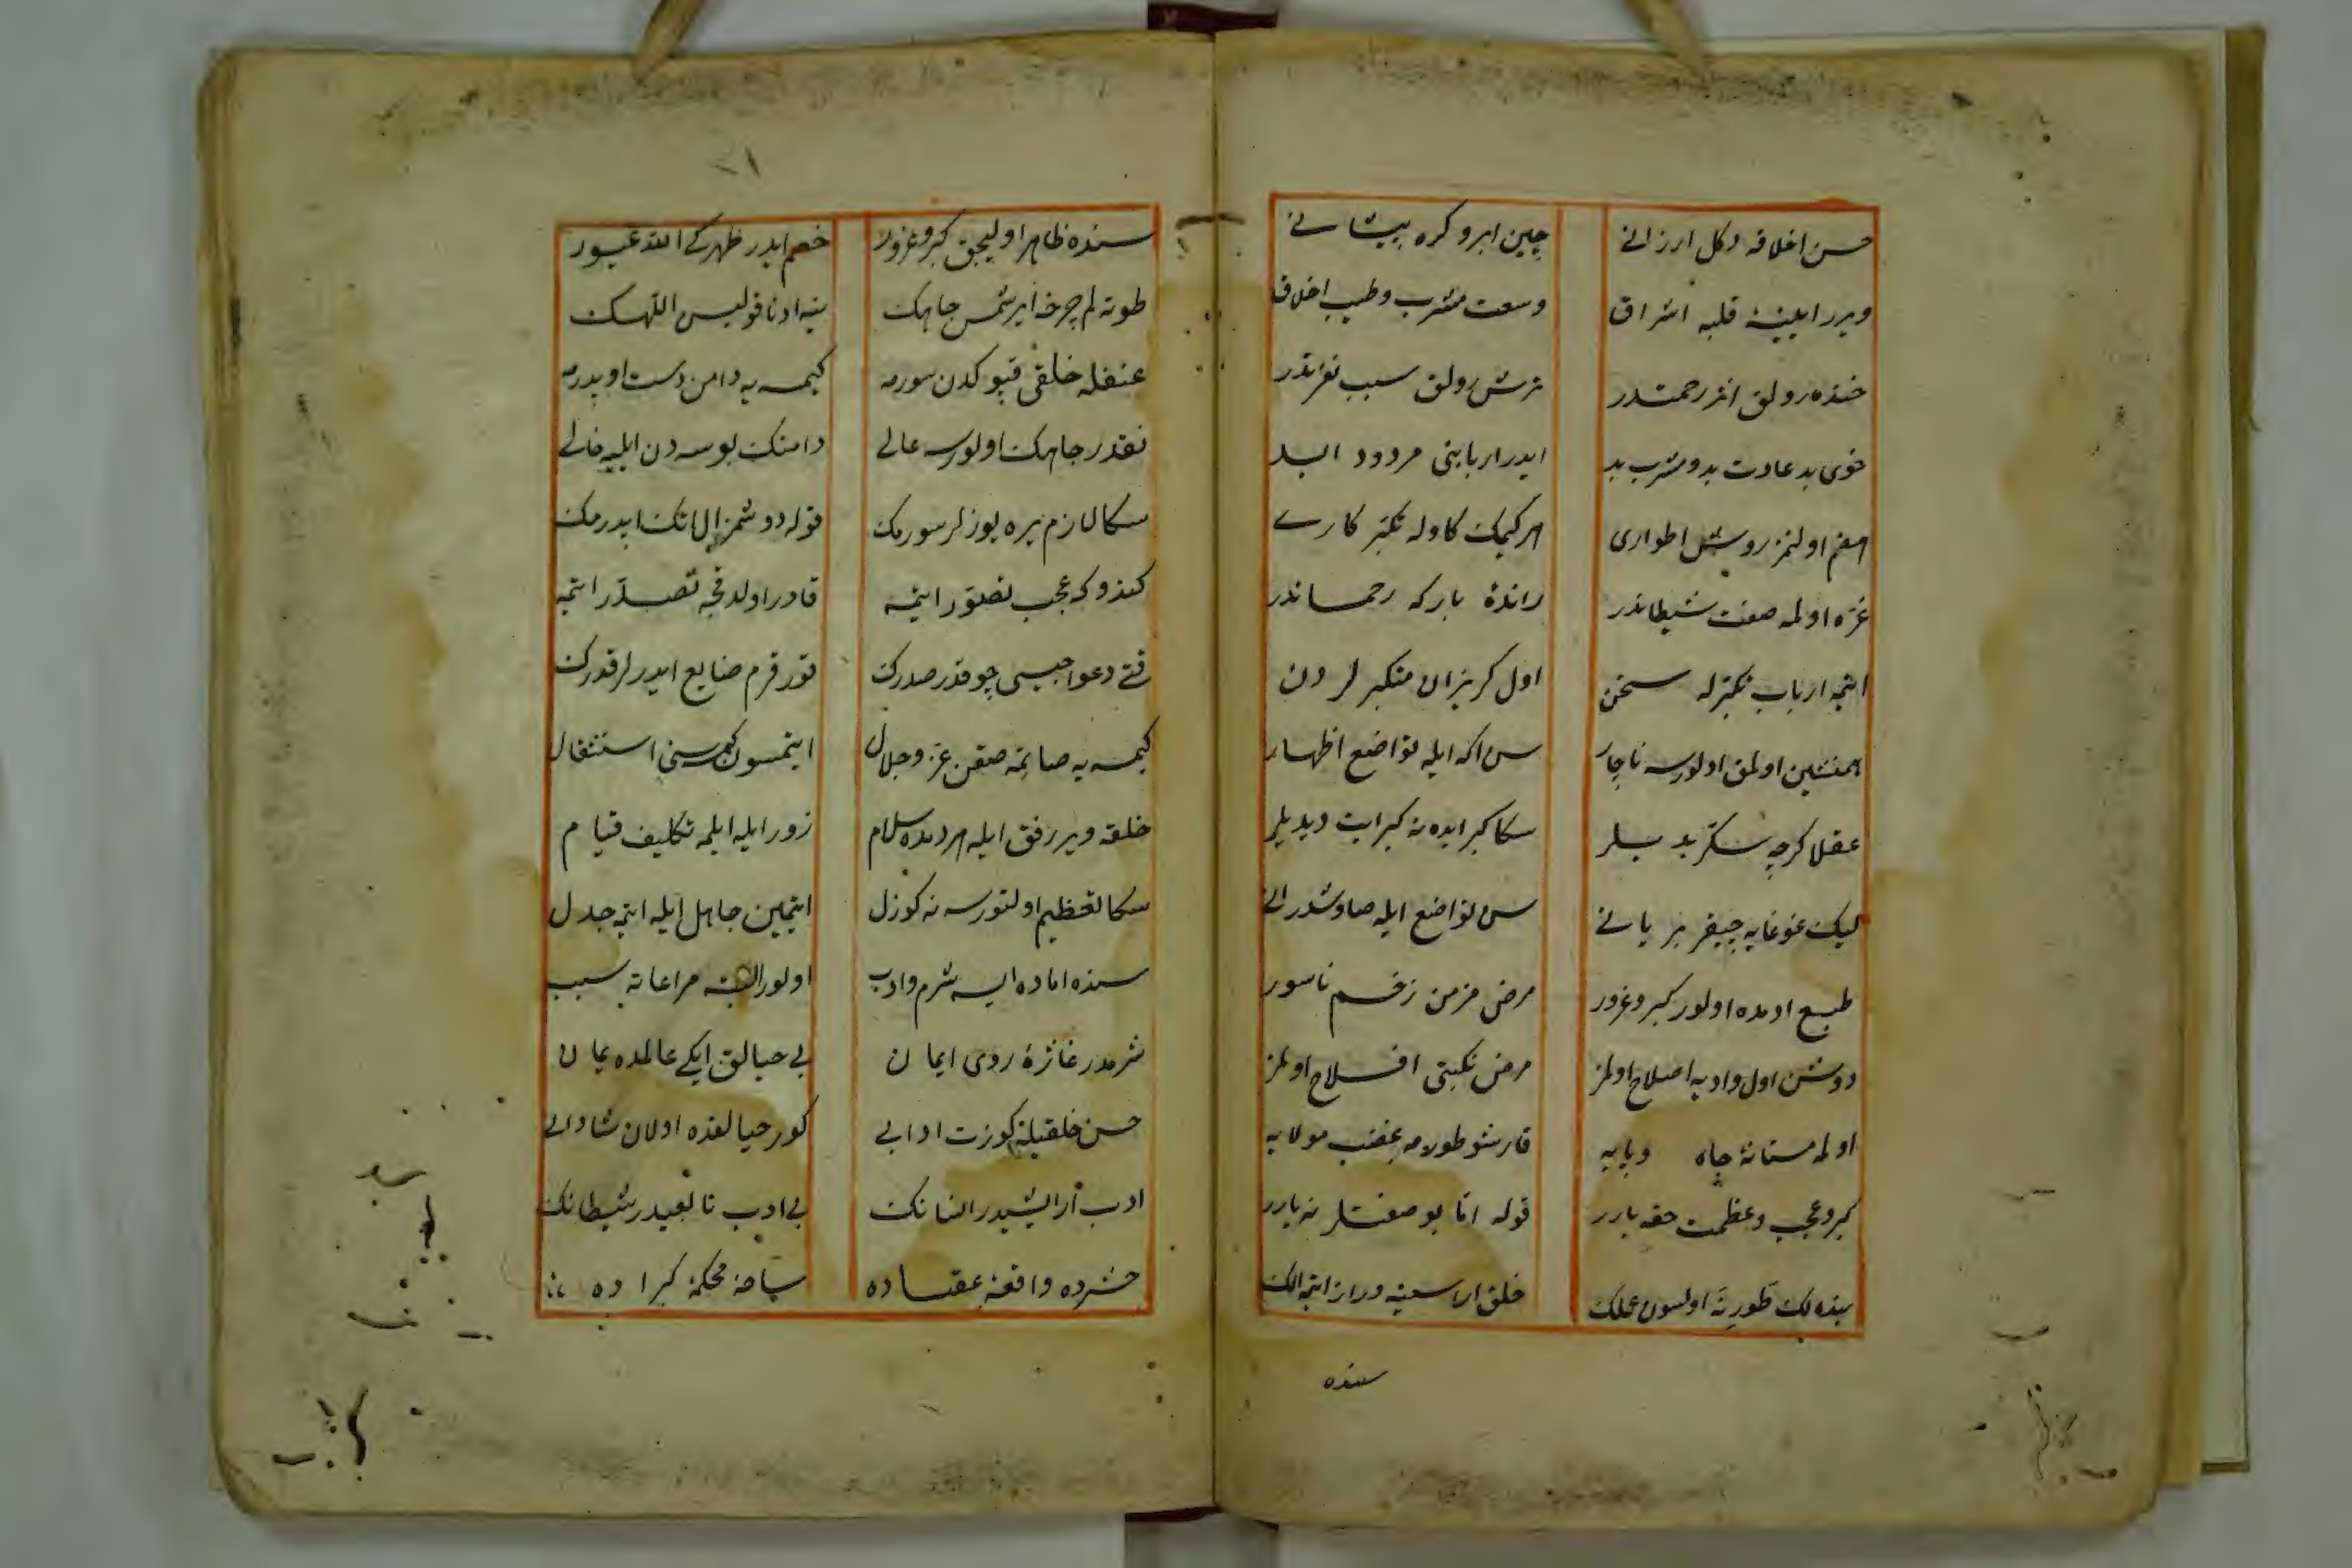 حسن اخلاقه دكل ارزانی چین ابرو كره پیشانی
ویرر ایینهٔ قلبه اشراق وسعت مشرب وطیب اخلاق
خنده رولق اثر رحمتدر ترش رولق سبب نفرتدر
خوی بد عادت بد ومشرب بد ایدر اربابنی مردود ابد
هضم اولنمز روش اطواری هر كیمك كاوله تكبر كاری
غره اولمه صفت شیطاندر راندهٔ باركه رحماندر
ایتمه ارباب تكبرله سخن اول كریزان متكبرلردن
همنشین اولمق اولورسه ناچار سن اكه ایله تواضع اظهار
عقلا كرچه سكز بد بیلر سكا كبر ایدنه كبر ایت دیدیلر
لیك غوغایه چیقر بر یانی سن تواضع ایله صاوشدر انی
طبع ادمده اولور كبر وغرور مرض مزمن زخم ناسور
دوشن اول وادیه اصلاح اولمز مرض نكبتی افلاح اولمز
اولمه مستانهٔ جاه وپایه قارشو طورمه غضب مولایه
كبر وعجب وعظمت حقه یارر قوله اتا بو صفتلر نه یارر
بنده لك طورنه اولسون عملك خلق اراسینه دراز ایتمه الك
سنده
٧١
سنده ظاهر اولیجق كبر وغرور خصم ایدر ظهركی الله غیور
طوته لم چرخه ایرشمس جاهك ینه ادنا قولیسن اللهك
عنفله خلقی قپوكدن سورمه كیمسه یه دامن دست اوپدرمه
نقدر جاهك اولورسه عالی دامنك بوسه دن ایلیه خالی
سكا لازم یره یوزلر سورمك قوله دوشمز ال اتك اپدرمك
كندوكه عجب تصور ایتمه قادر اولدقچه تصدر ایتمه
رقتی دعواجیسی چوقدر صدرك قورقرم ضایع ایدرلر قدرك
كیمسه یه صاتمه صقن عز وجلال ایتمسون كمسه سنی استثقال
خلقه ویر رفق ایله هر دمده سلام زور ایله ایلمه تكلیف قیام
سكا تعظیم اولنورسه نه كوزل ایتمین جاهل ایله ایتمه جدل
سنده اماده ایسه شرم وادب اولور البته مراعاته سبب
شرمدر غازهٔ روی ایمان بی حیالق ایكی عالمده یمان
حسن خلقیله كوزت ادابی كور حیالغده اولان شادابی
ادب ارایشیدر انسانك بی ادب تابعیدر شیطانك